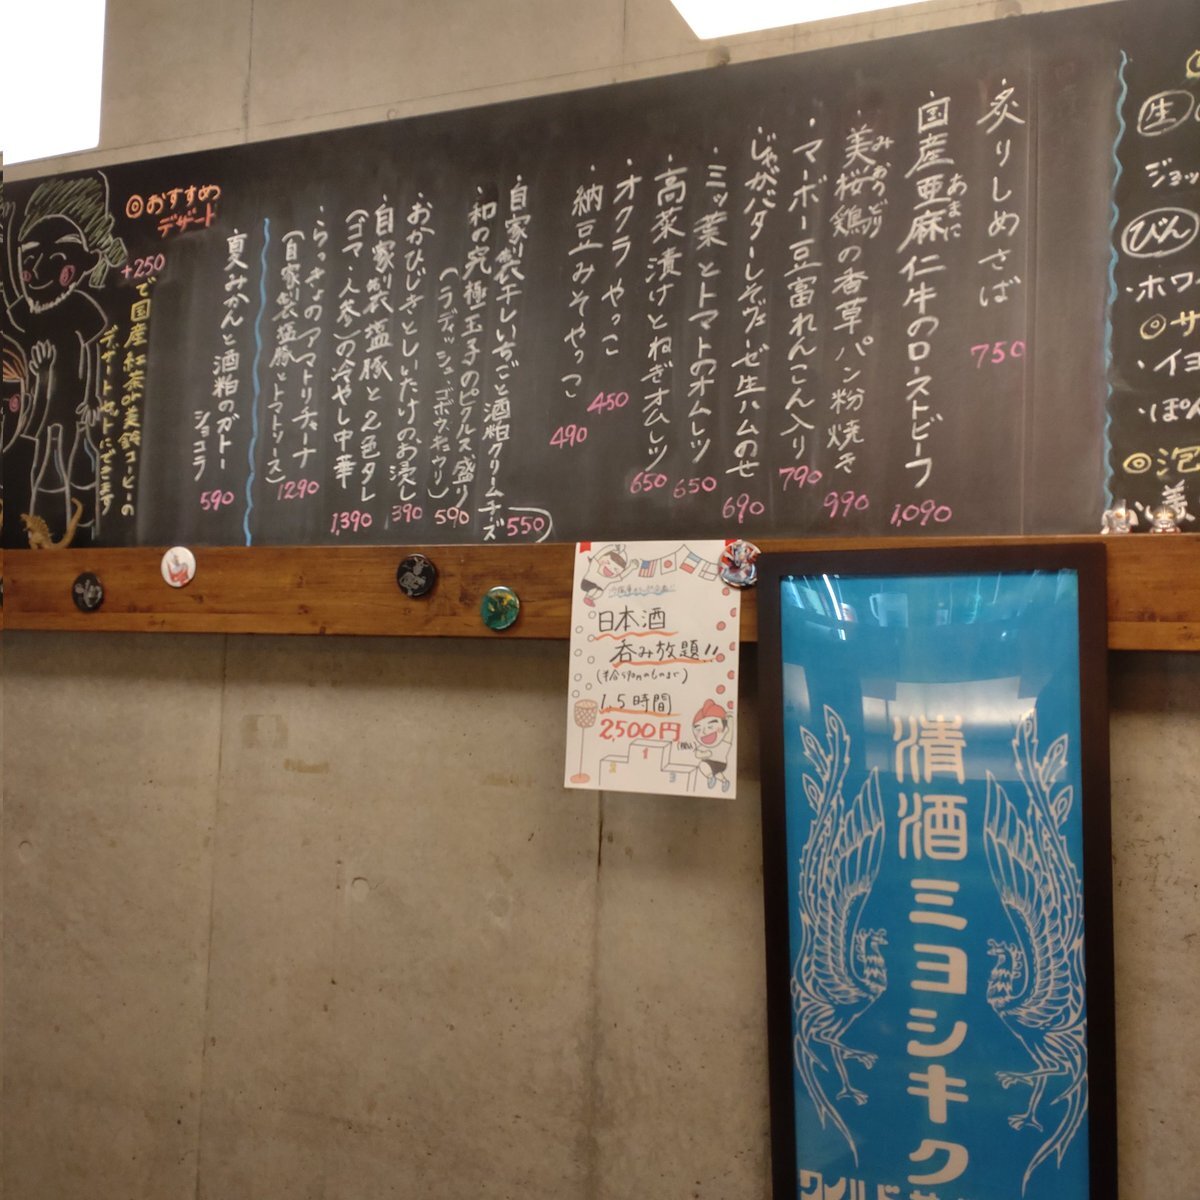 炙りしめさば
750
国産亜麻仁牛のローストビーフ
あまに
1,090
美桜鶏の香草パン粉焼き
みおうどり
990
マーボー豆富れんこん入り
790
じゃがバターしそヴェーゼ生ハムのせ
690
ミッ葉とトマトのオムレツ
650
高菜漬けとねぎオムレツ
650
オクラやっこ
450
納豆みそやっこ
490
自家製干しいちごと酒粕クリームチーズ
550
和の究極玉子のピクルス盛り
(ラディッシュ・ゴボウ・キュウリ)
590
おかひじきとしいたけのお浸し
390
自家製塩豚と2色タレ
(ゴマ・人参)の冷やし中華
1,390
らっきょのアマトリチャーナ
(自家製塩豚とトマトソース)
1290
◎おすすめ
デザート
夏みかんと酒粕のガトー
ショコラ
590
+250
で国産紅茶or美鈴コーヒーの
デザートセットにできます
生
ジョッ
びん
・ホワ
◎サ
・イヨ
・ぽん
◎泡
日本酒
呑み放題!!
1.5時間
2,500円
(税込)
1
2
3
清酒ミヨシキク
ワイルド